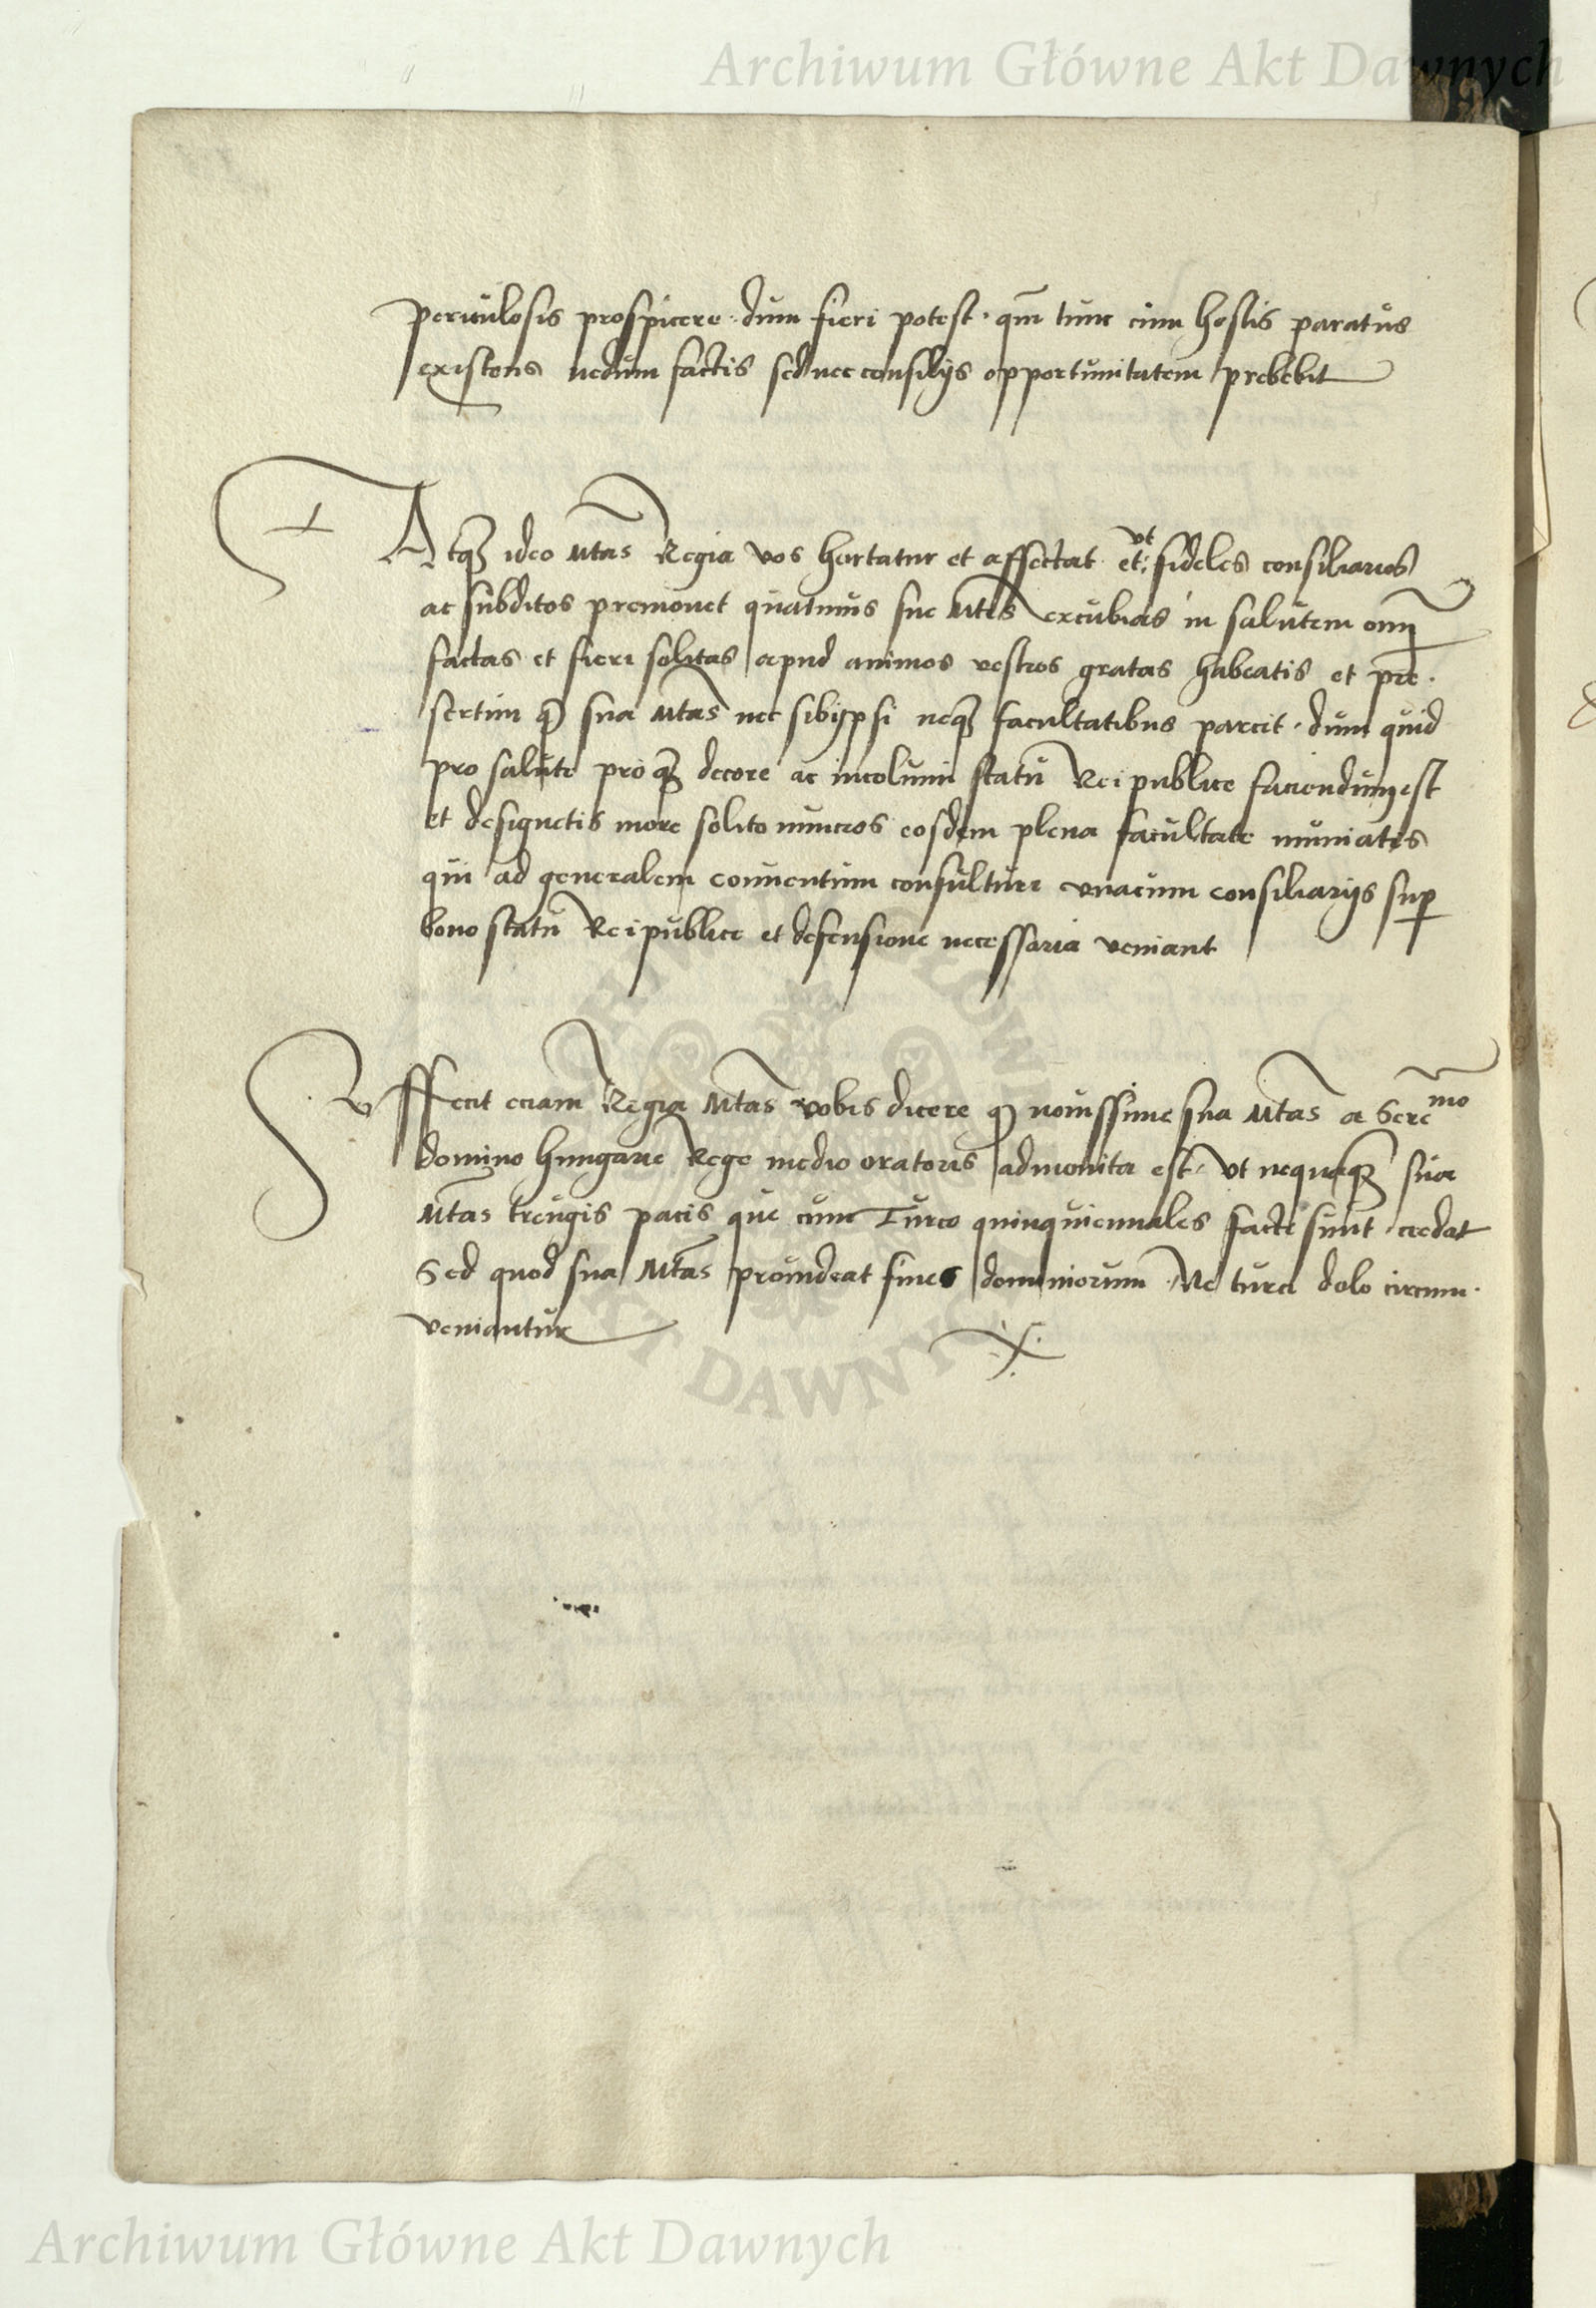 Archiwum Główne Akt Dawnych
periculosis prospicere · dum fieri potest · qm̃ tunc cum hostis paratus
existens nedum factis sed nec consilijs opportunitatem prebebit
Atqꝫ ideo Mtas Regia vos hortatur et affectat et ut fideles consiliarios
ac subditos premonet quatinus sue Mtis excubias in salutem omĩ
factas et fieri solitas apud animos vestros gratas habeatis et pre·
sertim qꝫ sua Mtas nec sibijpsi neqꝫ facultatibus parcit · dum quid
pro salute proqꝫ decore ac incolumi statu Reipublice faciendum est
et designetis more solito nuncios eosdem plena facultate muniatis
qui ad generalem conuentum consulturi vnacum consiliarijs sup
bono statu Reipublice et defensione necessaria veniant
Suffecit eciam Regia Mtas vobis dicere qꝫ nouissime sua Mtas a Sere mo
domino Hungarie Rege medio oratoris admonita est · Vt nequaqꝫ sua
Mtas treugis pacis que cum Turco quinquiennales facte sunt credat
Sed quod sua Mtas prouideat fines dominiorum · Ne turci dolo circum·
veniantur
ARCHIWUM GŁÓWNE AKT DAWNYCH
Archiwum Główne Akt Dawnych